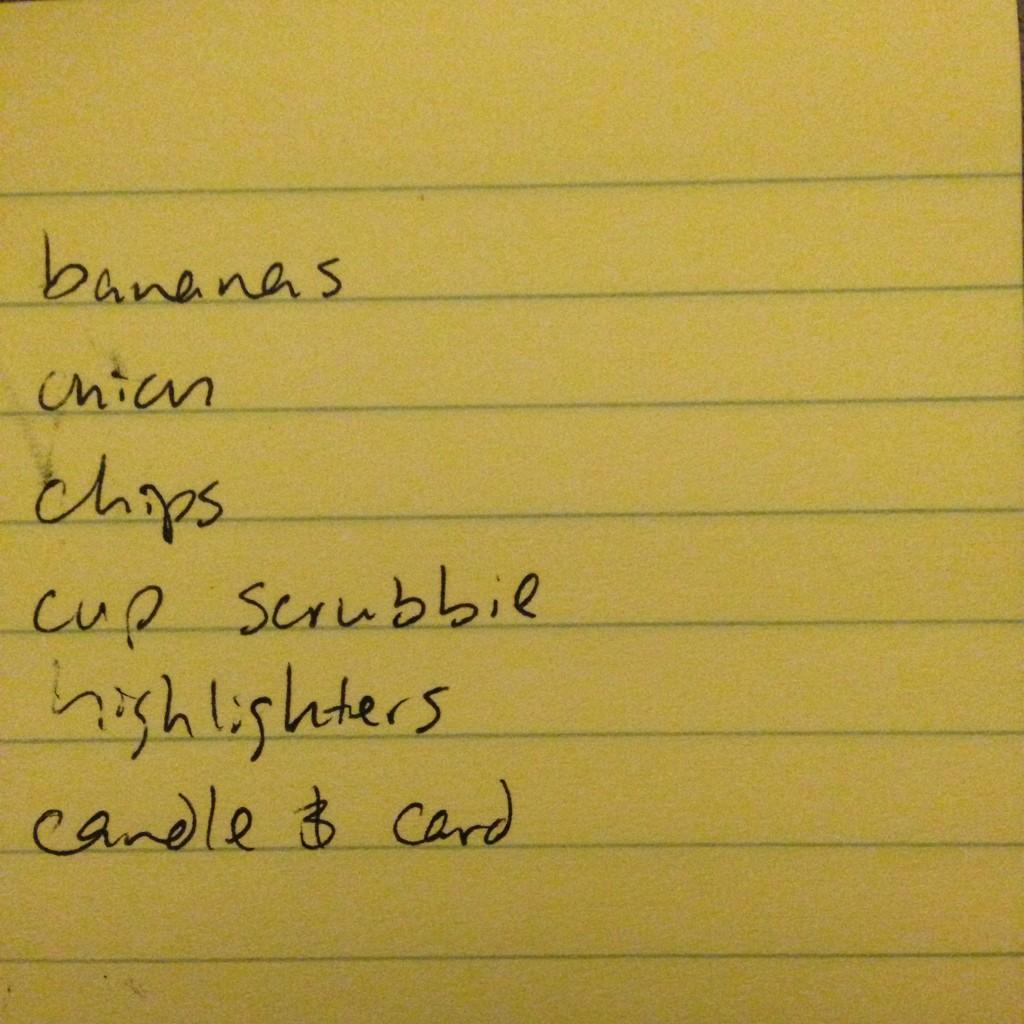 bananas
onion
chips
cup scrubbie
highlighters
candle & card